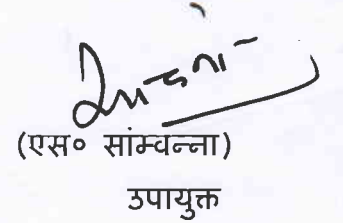 (एस० सांम्वन्ना)
उपायुक्त